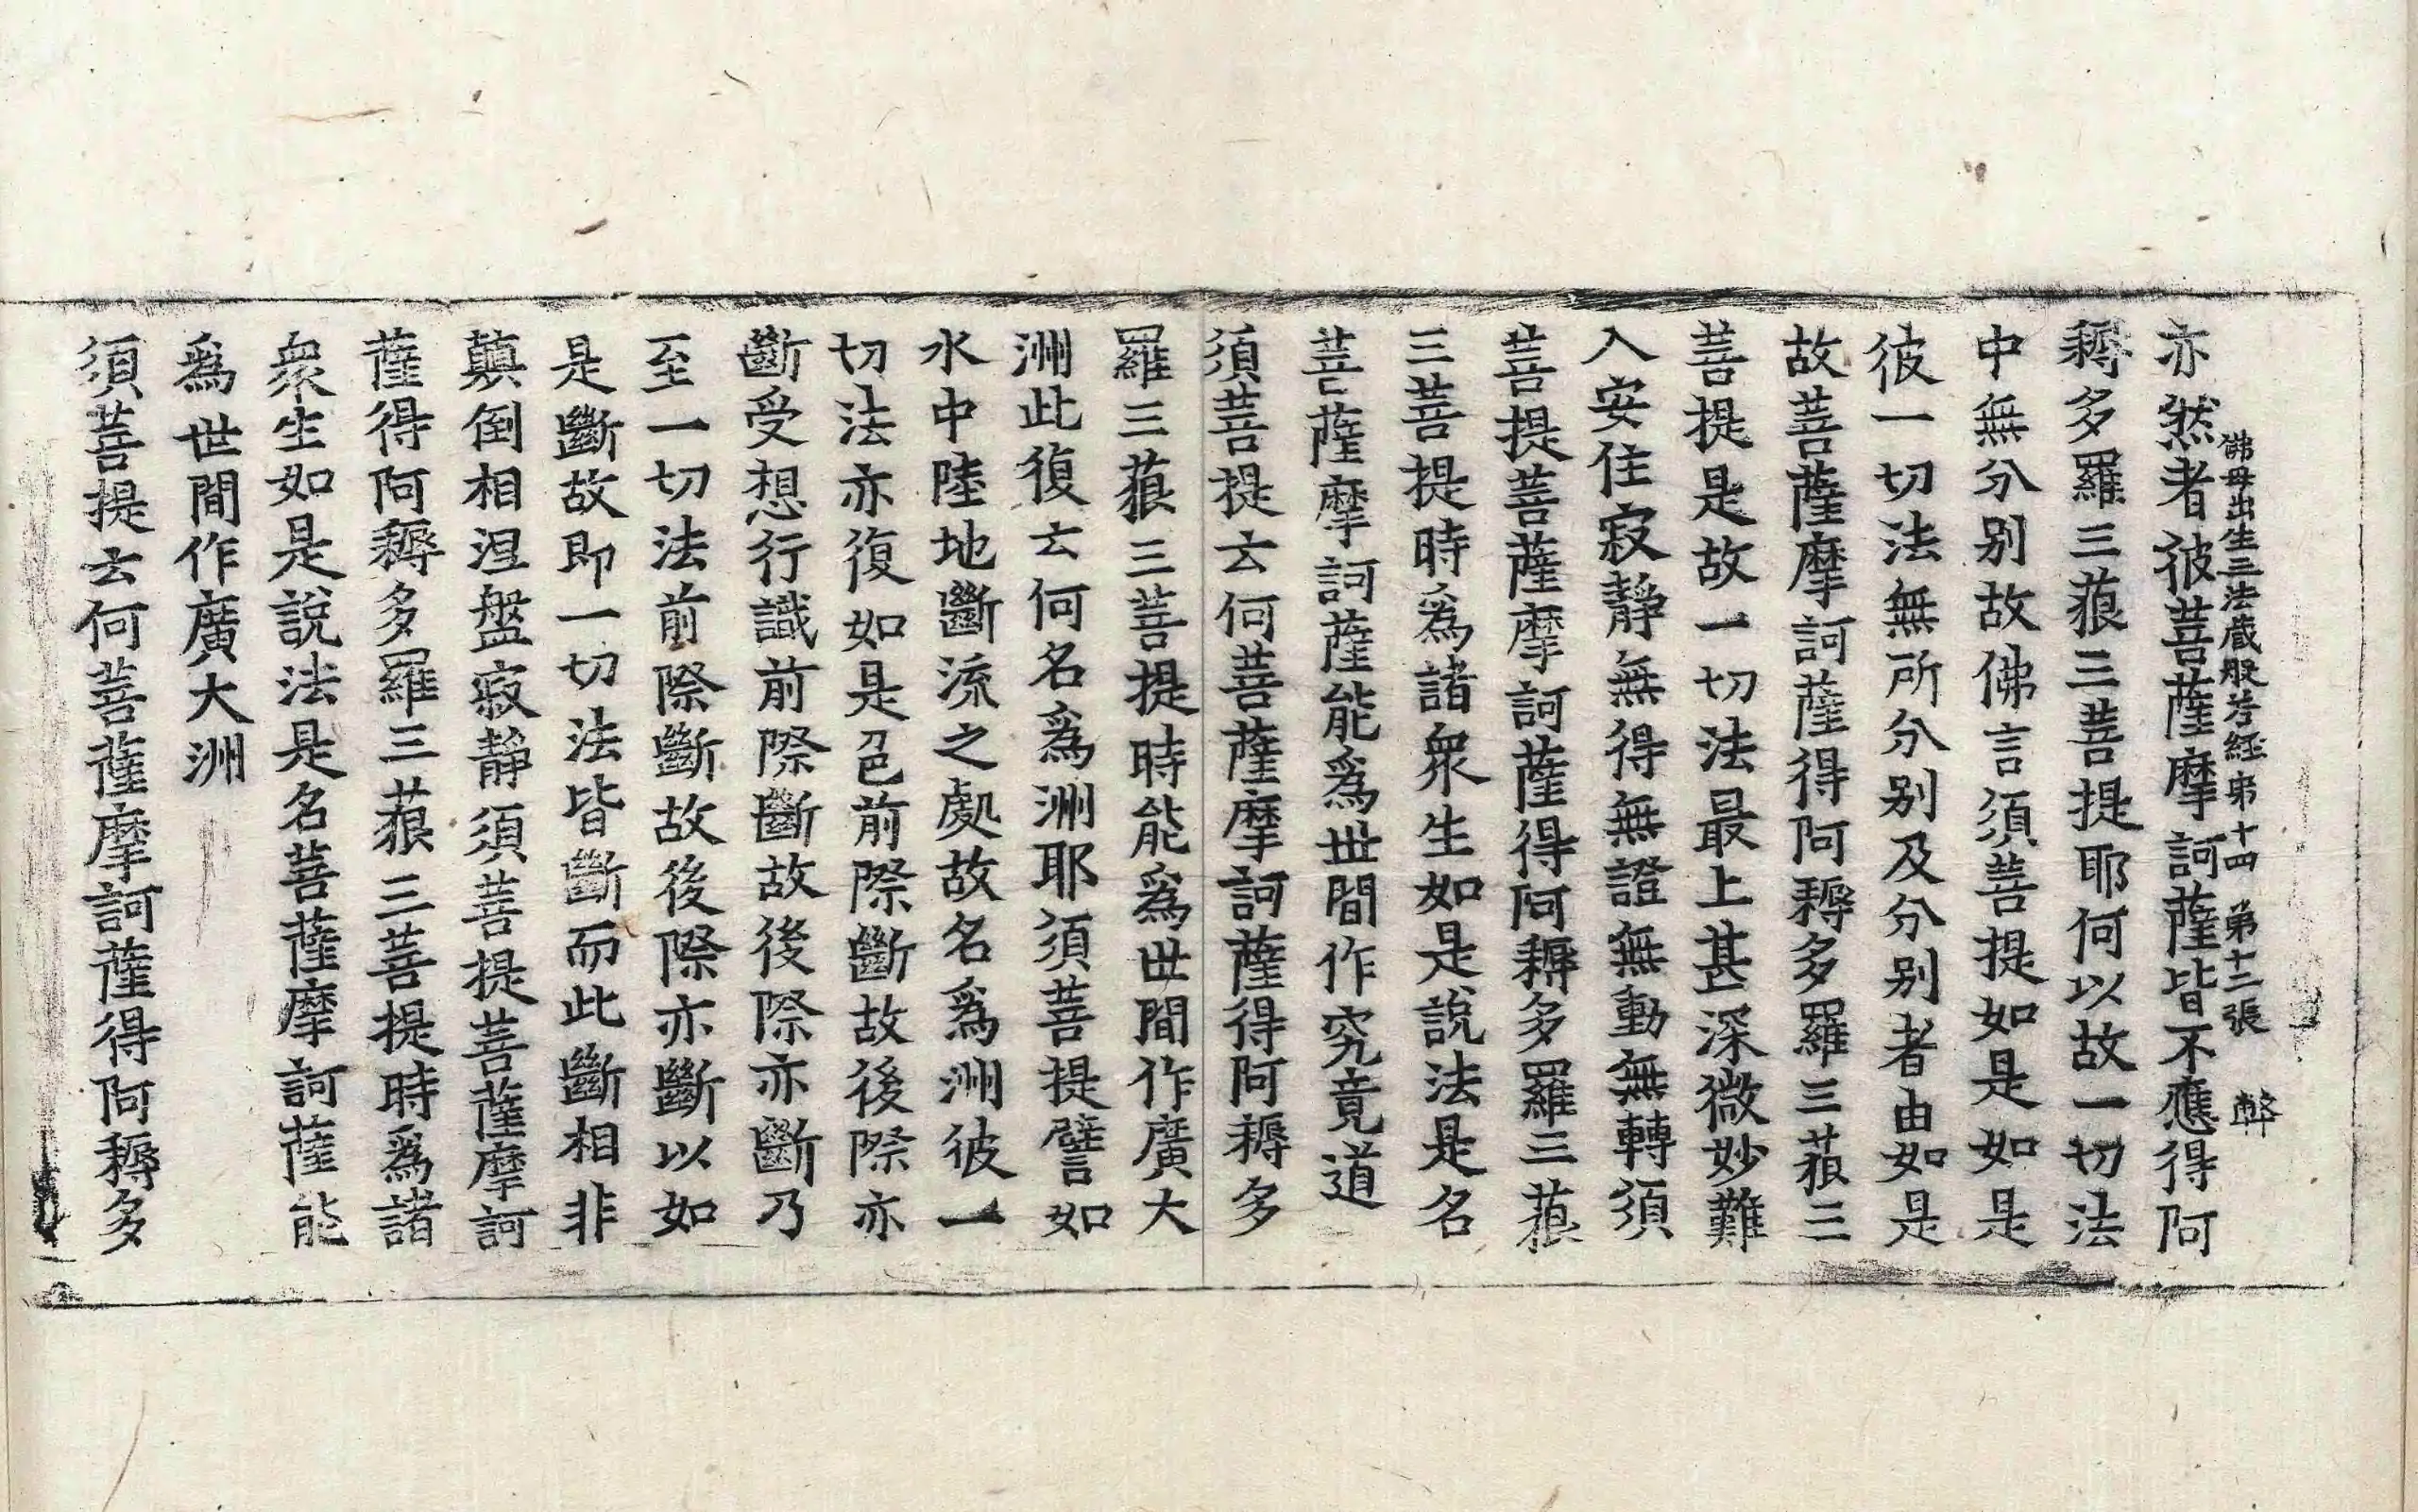 佛母出生三法藏般若經第十四 第十二張
亦然者彼菩薩摩訶薩皆不應得阿
耨多羅三藐三菩提耶何以故一切法
中無分别故佛言須菩提如是如是
彼一切法無所分别及分别者由如是
故菩薩摩訶薩得阿耨多羅三藐三
菩提是故一切法最上甚深微妙難
入安住寂靜無得無證無動無轉須
菩提菩薩摩訶薩得阿耨多羅三藐
三菩提時爲諸衆生如是說法是名
菩薩摩訶薩能爲世間作究竟道
須菩提云何菩薩摩訶薩得阿耨多
羅三藐三菩提時能爲世間作廣大
洲此復云何名爲洲耶須菩提譬如
水中陸地斷流之處故名爲洲彼一
切法亦復如是色前際斷故後際亦
斷受想行識前際斷故後際亦斷乃
至一切法前際斷故後際亦斷以如
是斷故即一切法皆斷而此斷相非
顛倒相涅盤寂靜須菩提菩薩摩訶
薩得阿耨多羅三藐三菩提時爲諸
衆生如是說法是名菩薩摩訶薩能
爲世間作廣大洲
須菩提云何菩薩摩訶薩得阿耨多